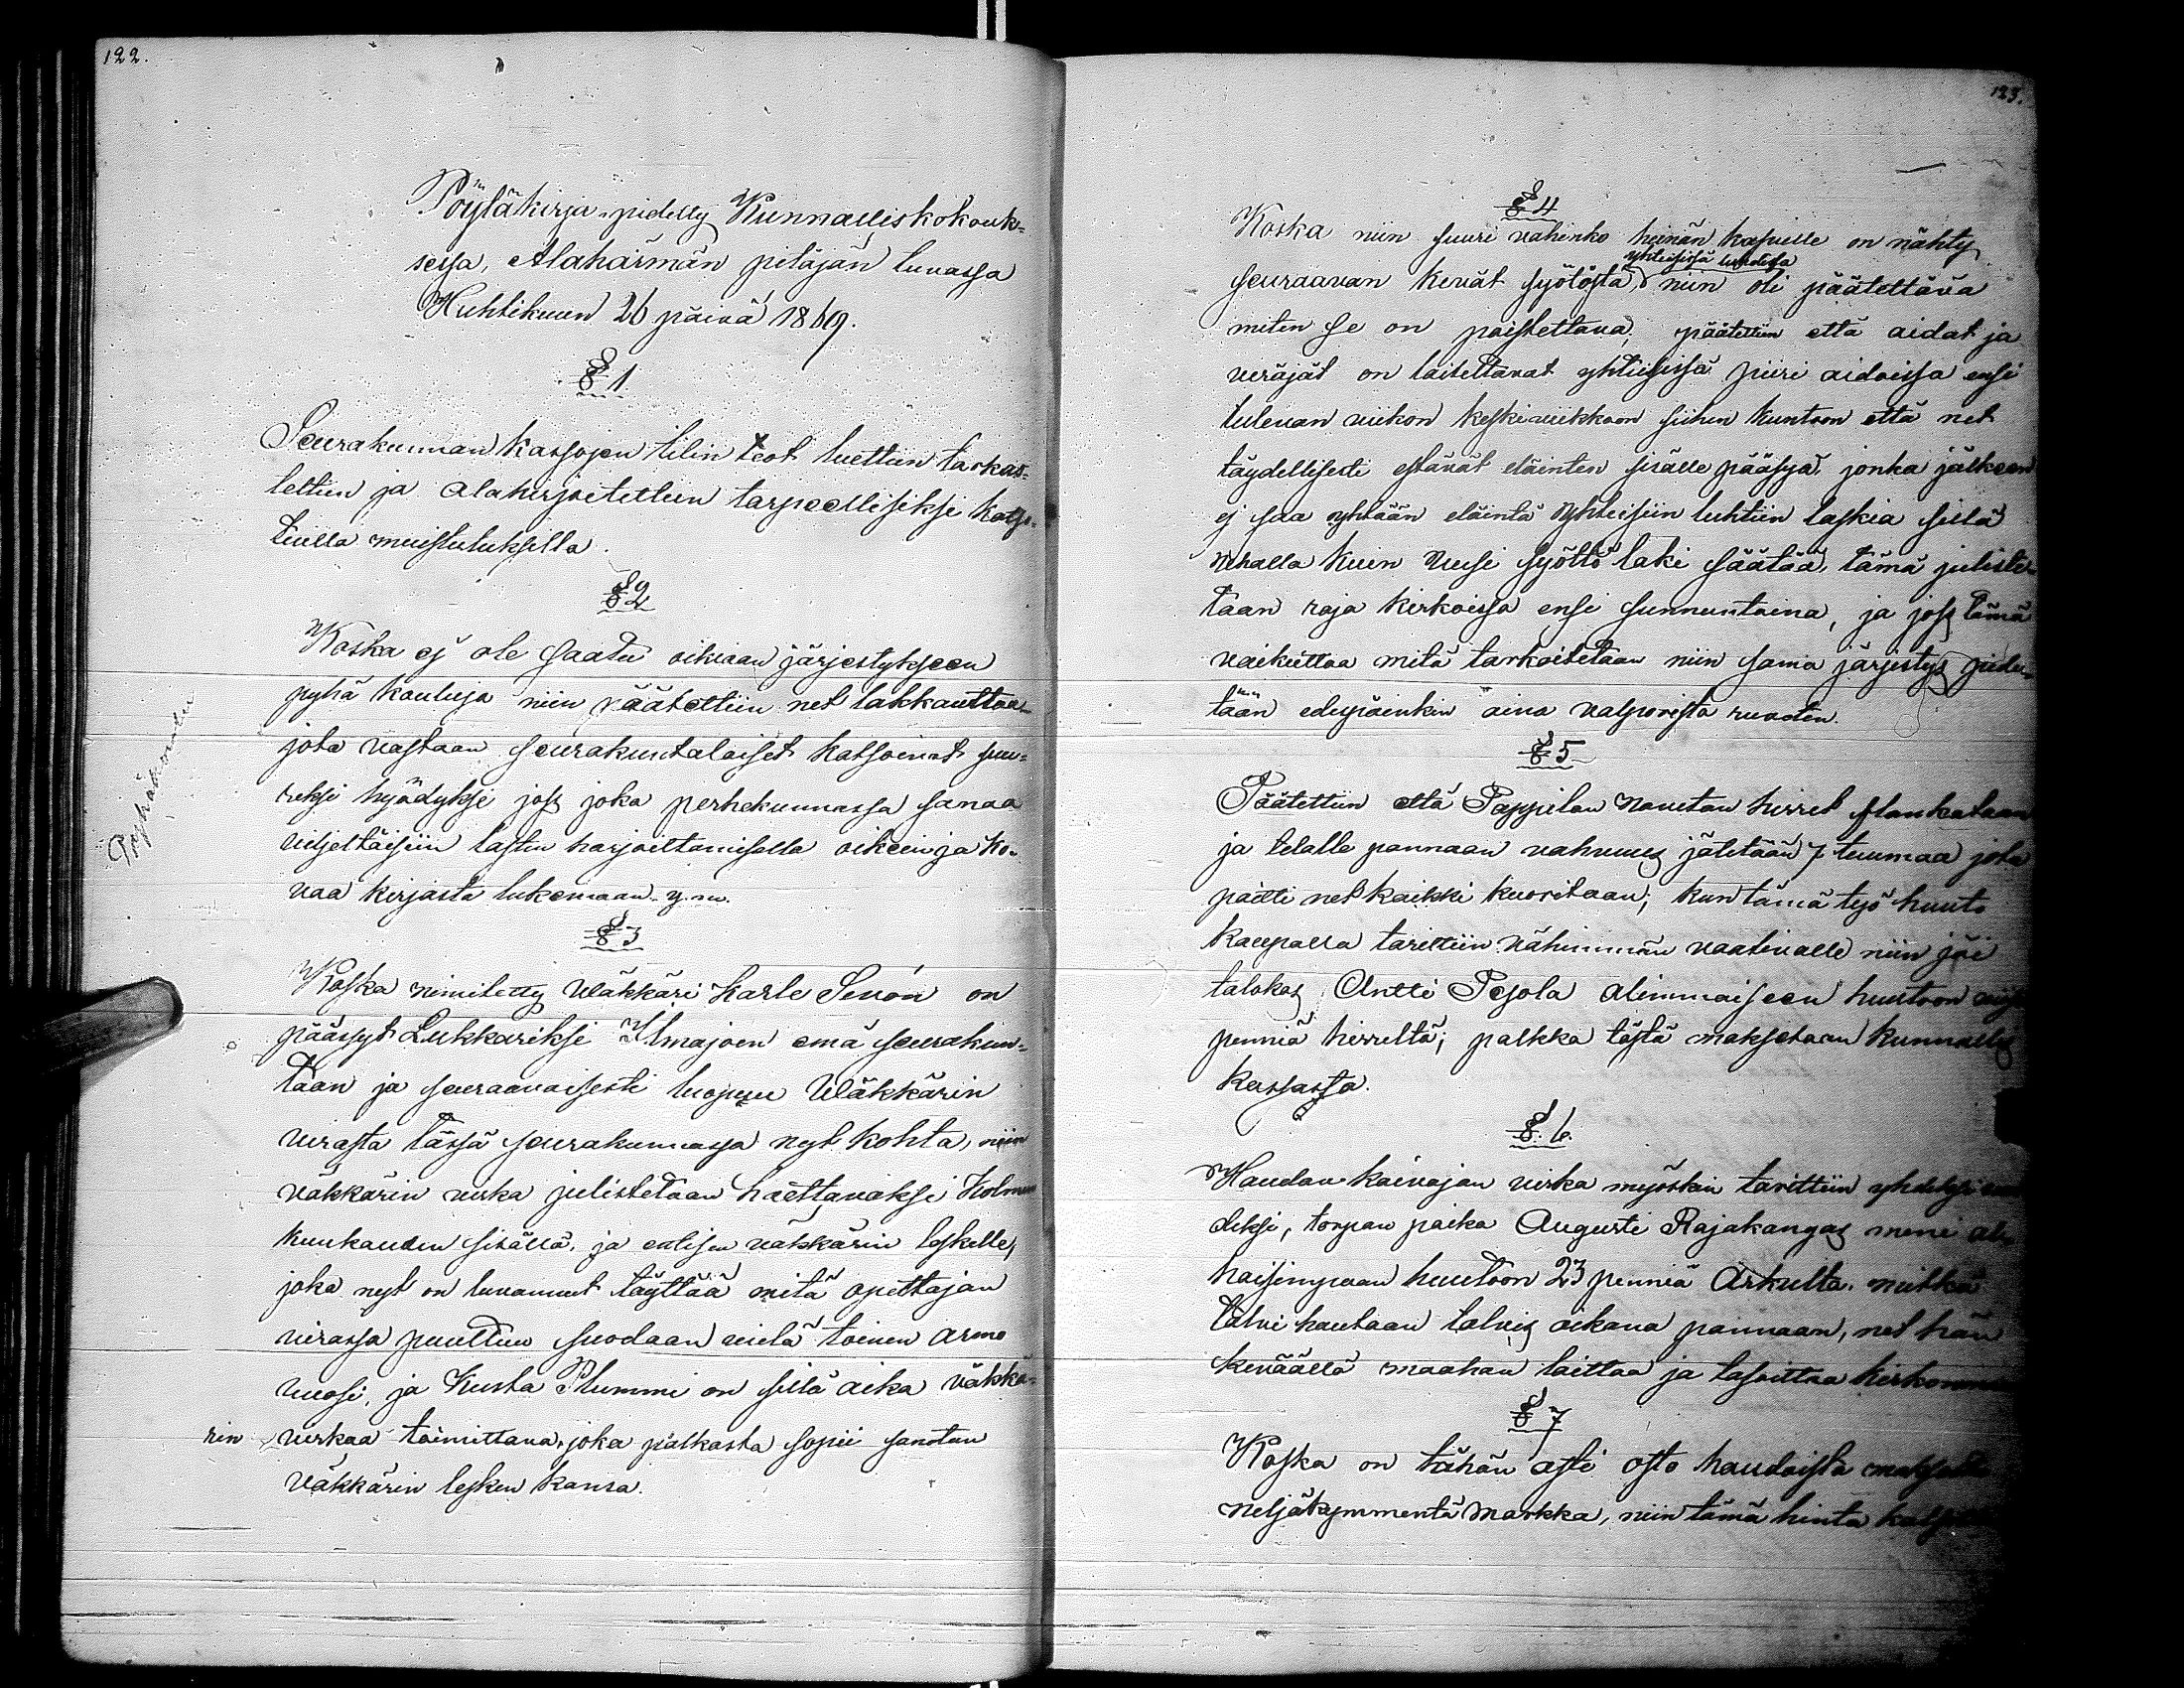 122.
Pöyläkirja pidetty Kunnalliskokouk-
sessa, Alahärmän pitäjän tuvassa
Huhtikuun 26 päivä 1869.
§ 1
Seurakunnan kassojen tilin teot luettiin tarkas-
tettiin ja alakirjoitettiin tarpeellisiksi katso-
tuilla muistutuksilla.
§ 2
Koska ej ole saatu oikiaan järjestykseen
pyhä kouluja niin päätettiin net lakkauttaa
jota vastaan seurakuntalaiset katsoivat suu-
reksi hyödyksi jos joka perhekunnassa sanaa
viljeltäisiin lasten harjoittamisella oikein ja ko-
vaa kirjasta lukemaan y.m.
Pyhäkoulu
§ 3
Koska nimitetty Wäkkäri Karle Senon on
päässyt Lukkariksi Ilmajoen emä seurakun-
taan ja seuraavaisesti luopuu Wäkkärin
virasta tässä seurakunnassa nyt kohta, niin
väkkärin virka julistetaan haettavaksi Kolmen
kuukauden sisällä, ja entisen väkkärin leskelle,
joka nyt on luvannut täyttää mitä opettajan
virassa puuttuu suodaan vielä toinen armo
vuosi, ja Kusta Plummi on sillä aika väkkä-
rin virkaa toimittava, joka palkasta sopii sanotun
väkkärin lesken kansa.
123.
§ 4
Koska niin suuri vahinko heinän kasville on nähty
yhteisissä luhdissa
seuraavan kevät syötöstä, niin oli päätettävä
miten se on poistettava; päätettiin että aidat ja
veräjät on laitettavat yhteisissä piiri aidoissa ensi
tulevan viikon keskiviikkoon siihen kuntoon että net
täydellisesti estävät eläinten sisälle pääsyä, jonka jälkeen
ej saa yhtään eläintä yhteisiin luhtiin laskia sillä
uhalla kuin uusi syöttö laki säätää, tämä juliste-
taan raja kirkoissa ensi sunnuntaina, ja jos tämä
vaikuttaa mitä tarkoitetaan niin sama järjestys pide-
tään edespäinkin aina valporista ruveten.
§ 5
Päätettiin että Pappilan navetan hirret plankataan
ja telalle pannaan vahvuus jätetään 7 tuumaa jota
paitti net kaikki kuoritaan; kun tämä työ huuto
kaupalla tarittiin vähimmän vaativalle niin jäi
talokas Antti Pesola alimmaiseen huutoon
penniä hirreltä; palkka tästä maksetaan kunnallis
kassasta.
§ 6.
Haudan kaivajan virka myöskin tarittiin yhdeksi
deksi, torpan poika Augusti Rajakangas meni al
haisimpaan huutoon 23 penniä Arkulta. mitkä
talvi hautaan talvis aikana pannaan, net hän
keväällä maahan laittaa ja tasoittaa
§ 7
Koska on tähän asti osto haudoista
neljäkymmentä markka, niin tämä hinta